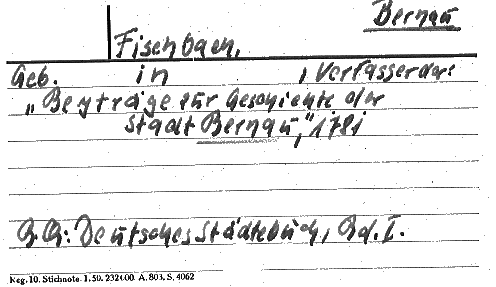 Bernau
Fischbach,
Geb. in , Verfasser der:
„Beyträge zur Geschichte der
Stadt Bernau," 1781
Deutsches Städtebuch, Bd. I.
Keg. 10. Stichnote. 1. 50. 232400. A. 803. S. 4062